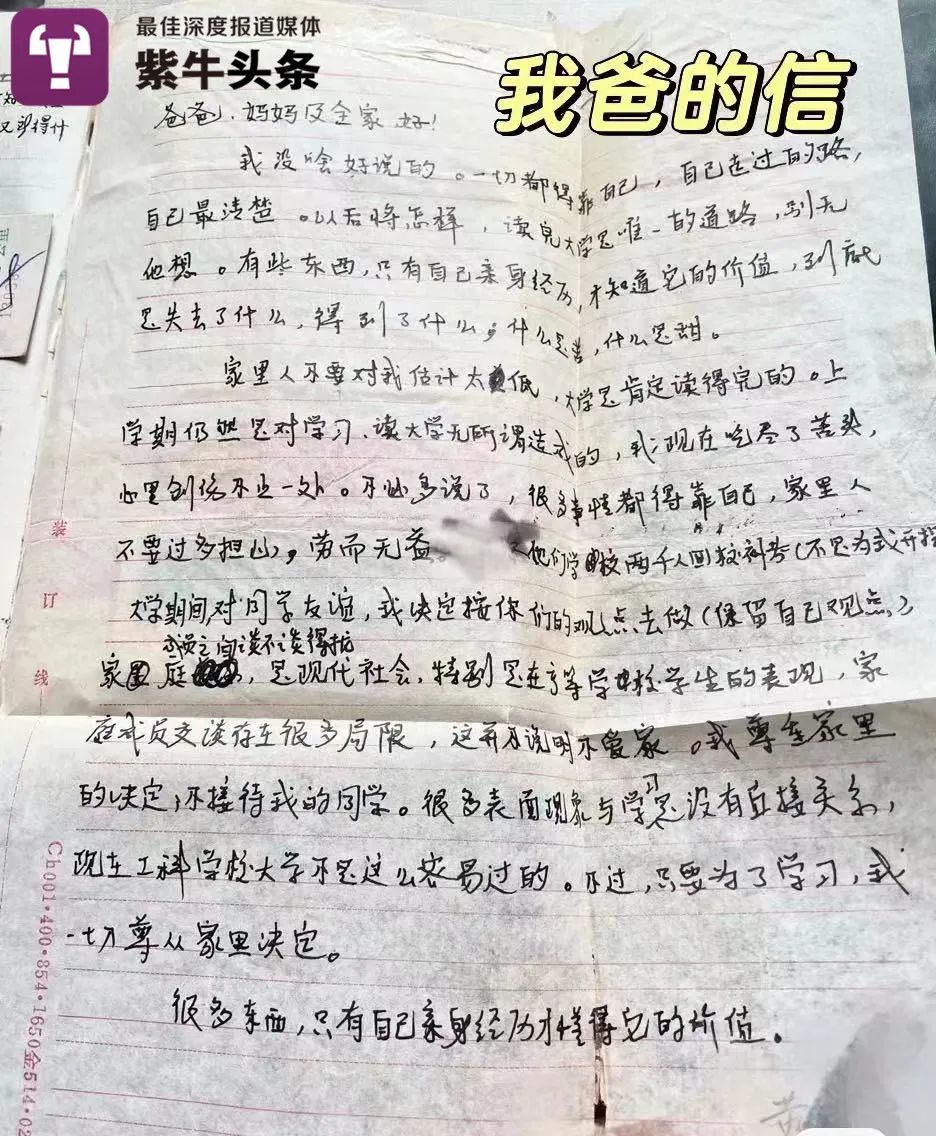 最佳深度报道媒体
紫牛头条
我爸的信
知
又获得什
爸爸、妈妈及全家好!
我没啥好说的。一切都得靠自己,自己走过的路,
自己最清楚。以后将怎样,读完大学是唯一的道路,别无
他想。有些东西,只有自己亲身经历,才知道它的价值,到底
是失去了什么,得到了什么;什么是苦,什么是甜。
家里人不要对我估计太低,大学是肯定读得完的。上
学期仍然是对学习、读大学无所谓造成的,我现在吃尽了苦头,
心里创伤不止一处。不必多说了,很多事情都得靠自己,家里人
不要过多担心,劳而无益。
他们学校两千人回校补考(不是为我开探
大学期间,对同学友谊,我决定按你们的观点去做(保留自己观点)
成员之间谈不谈得拢
家庭,是现代社会,特别是在高等学校学生的表现,家
庭成员交谈存在很多局限,这并不说明不爱家。我尊重家里
的决定,不接待我的同学。很多表面现象与学习是没有直接关系,
现在工科学校大学不是这么容易过的。不过,只要为了学习,我
一切尊从家里决定。
很多东西,只有自己亲身经历才懂得它的价值。
装
订
线
Ch001·400·854·1650金514·02